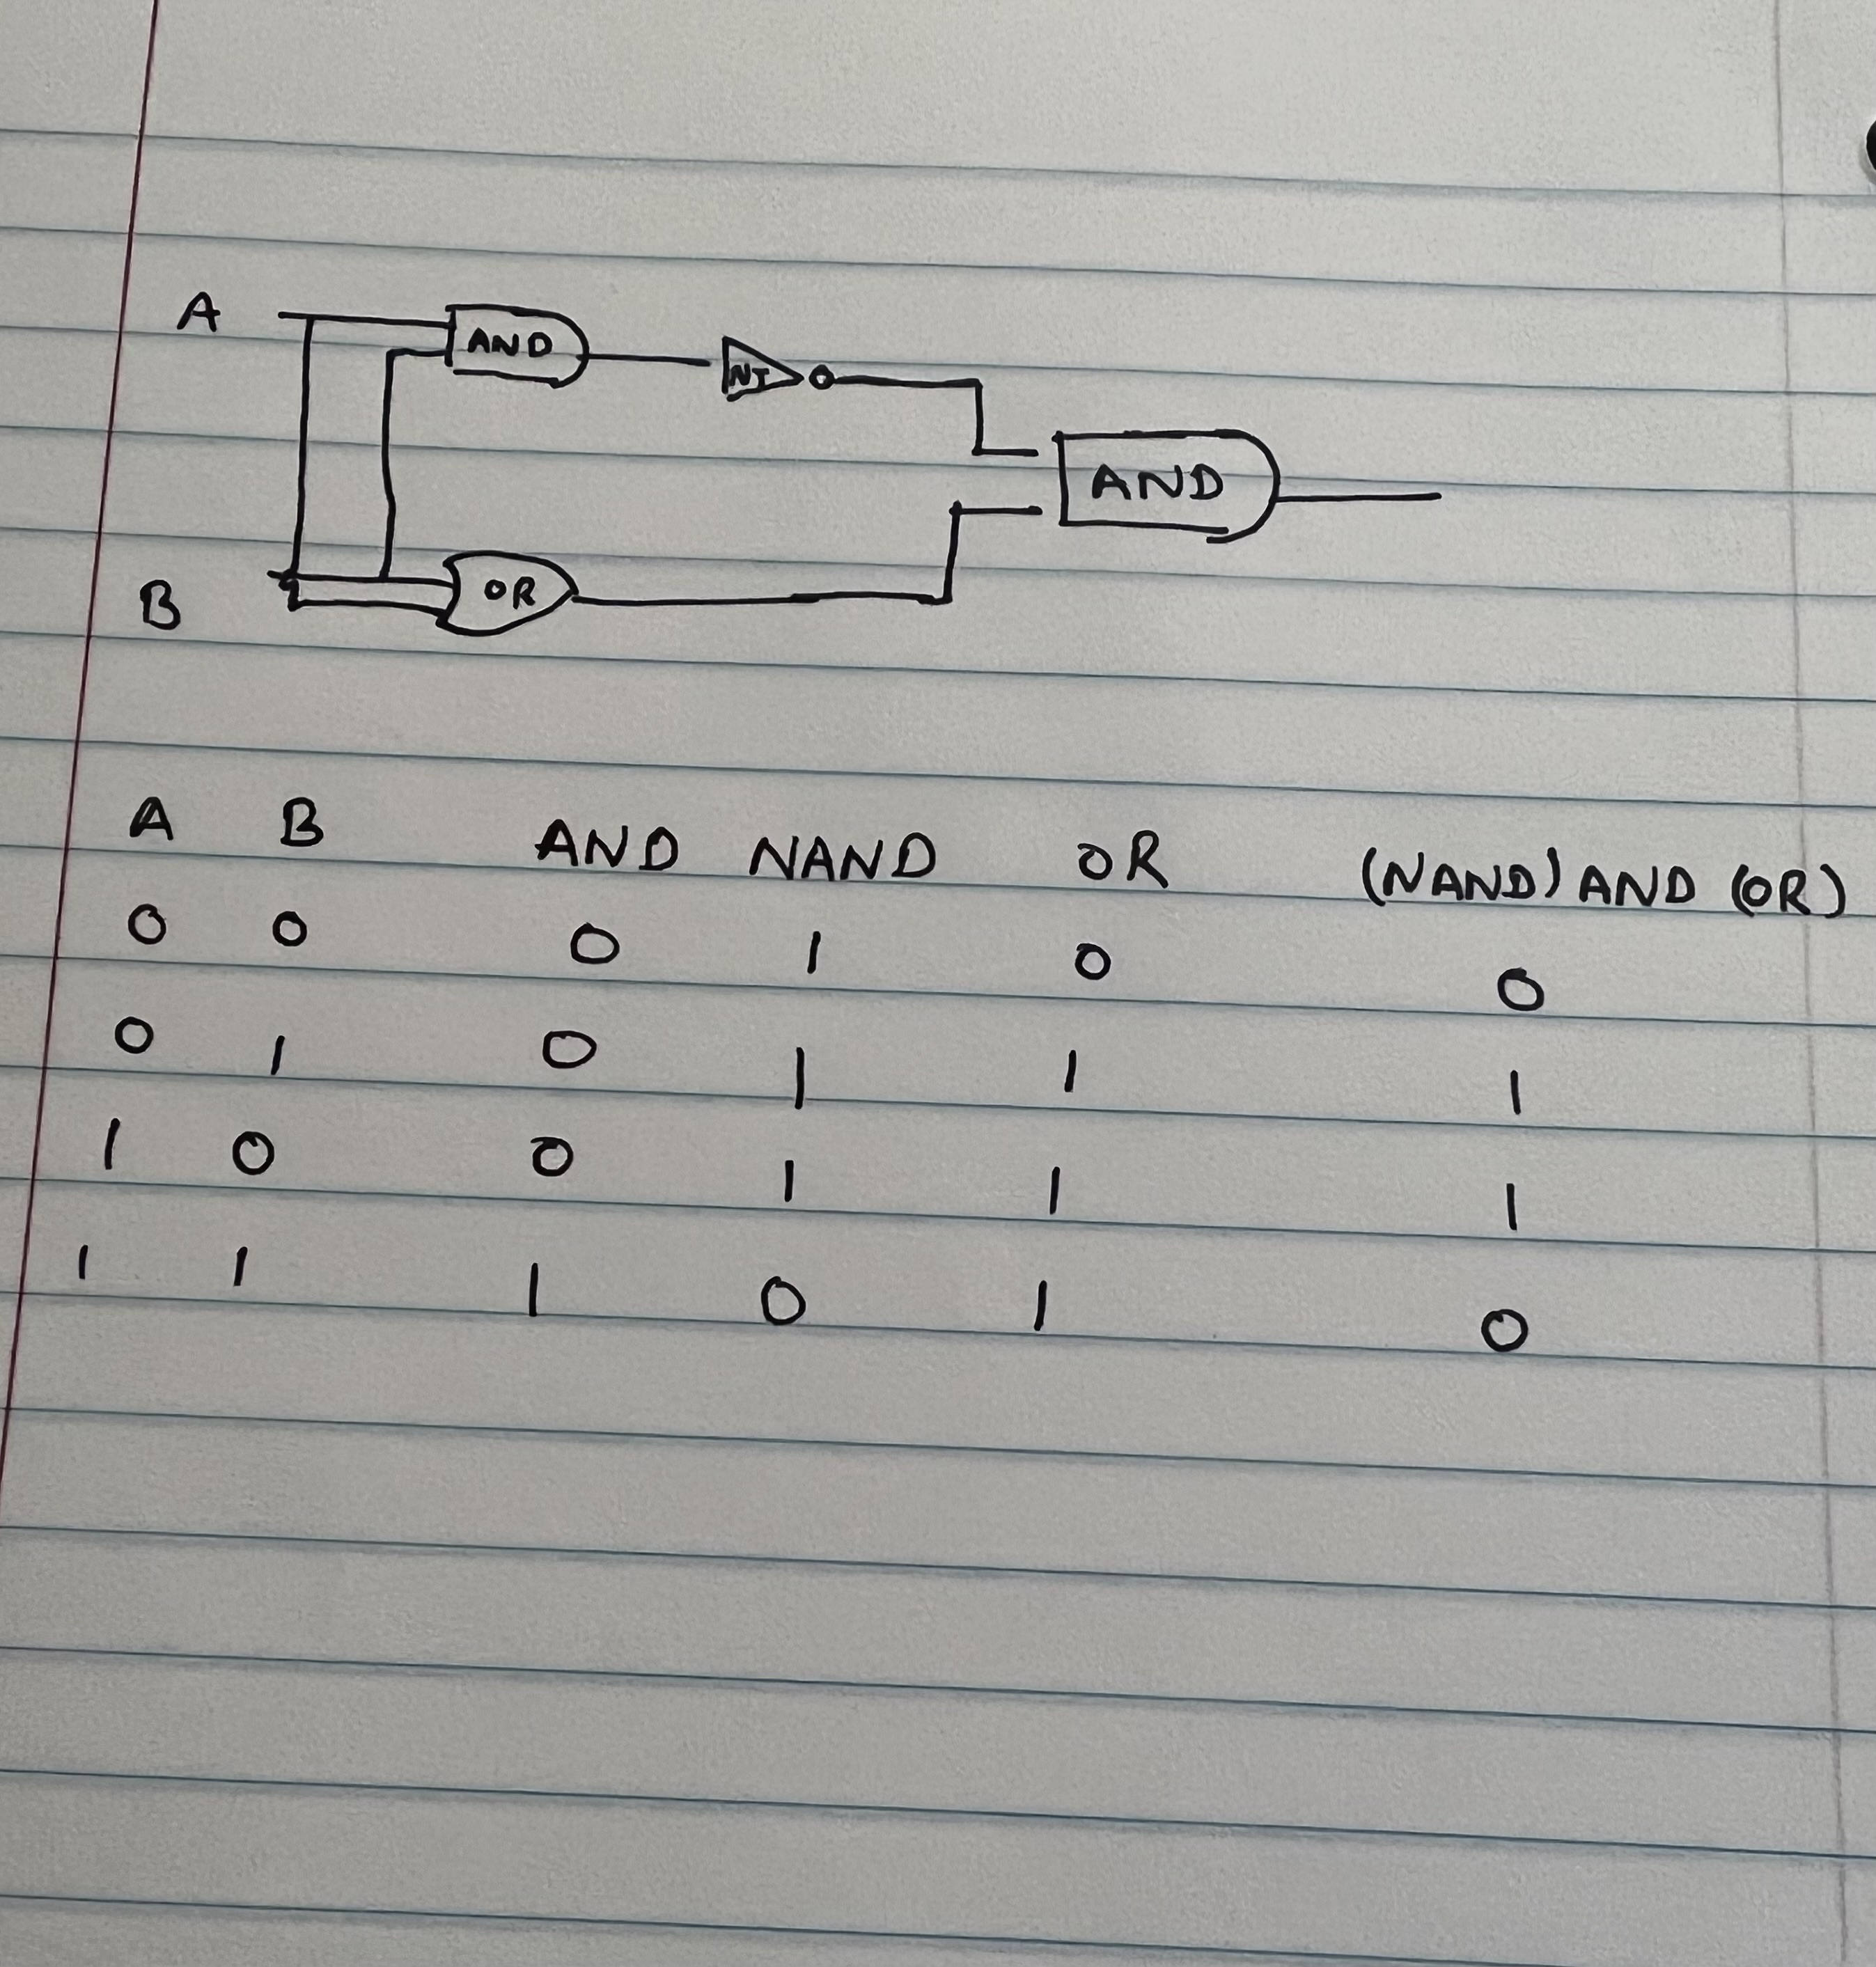 A
AND
NT
AND
B
OR
A B AND NAND OR (NAND) AND (OR)
0 0 0 1 0 0
0 1 0 1 1 1
1 0 0 1 1 1
1 1 1 0 1 0